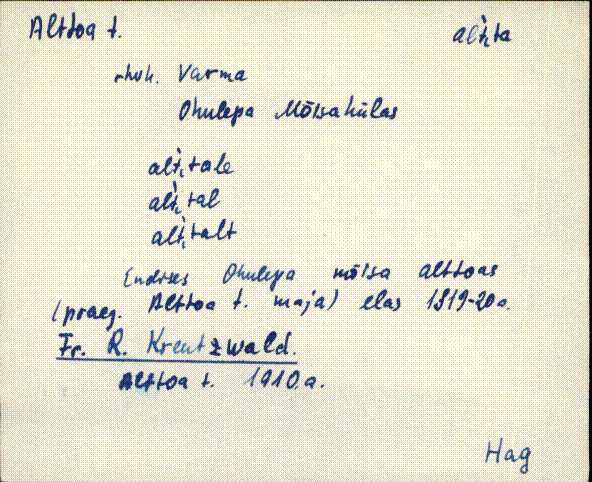 Alttoa t. alt̀,ta
rhvk. Varma
Ohulepa Mõisakülas
alt̀,tale
alt̀,tal
alt̀,talt
Endises Ohulepa mõisa alttoas
(praeg. Alttoa t. maja) elas 1819-20a.
Fr. R. Kreutzwald.
Alttoa t. 1910.a.
Hag